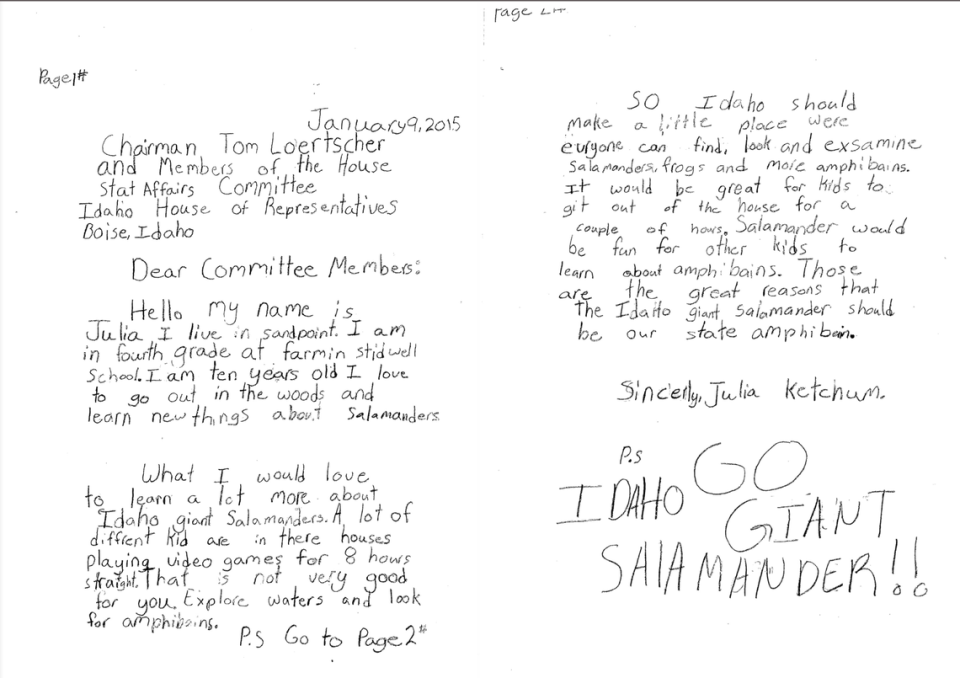 Page1#
January9,2015
Chairman Tom Loertscher
and Members of the House
Stat Affairs Committee
Idaho House of Representatives
Boise, Idaho
Dear Committee Members:
Hello my name is
Julia I live in sandpoint. I am
in fourth grade at farmin stidwell
School. I am ten years old I love
to go out in the woods and
learn new things about Salamanders
What I would love
to learn a lot more about
Idaho giant Salamanders. A lot of
diffrent kid are in there houses
playing video games for 8 hows
straight. That is not very good
for you. Explore waters and look
for amphibains.
P.S Go to Page2#
Page 2#
SO Idaho should
make a little place were
euryone can find, look and exsamine
Salamanders, frogs and more amphibains.
It would be great for kids to
git out of the house for a
couple of hows. Salamander would
be fun for other kids to
learn about amphibains. Those
are the great reasons that
the Idaho giant salamander should
be our state amphibain.
Sincerly, Julia Ketchum.
P.s GO
IDAHO GIANT
SAlAMANDER!!